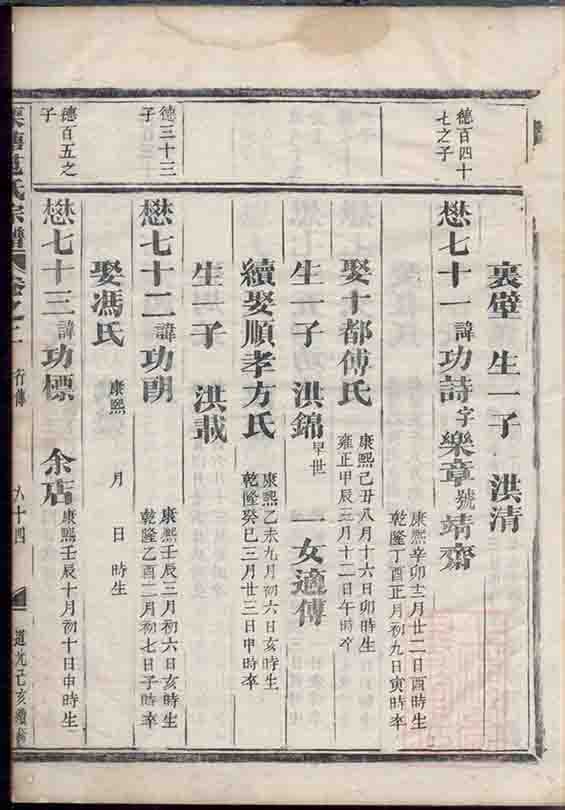 裏壁 生一子 洪清
德百四十七之子
懋七十一 諱功詩 字樂章 號靖齋
康熙辛卯十二月廿二日酉時生
乾隆丁酉正月初九日寅時卒
娶十都傅氏
康熙己丑八月十六日卯時生
雍正甲辰三月十二日午時卒
生一子 洪錦 早世 一女適傅
續娶順孝方氏
康熙乙未九月初六日亥時生
乾隆癸巳三月廿三日申時卒
生一子 洪載
德三十三子
懋七十二 諱功明
康熙壬辰三月初六日亥時生
乾隆乙酉二月初七日子時卒
娶馮氏 康熙 月 日 時生
德百五之子
懋七十三 諱功標 余店
康熙壬辰十月初十日申時生
范氏宗譜 卷之二 行傳 八十四 道光己亥續修